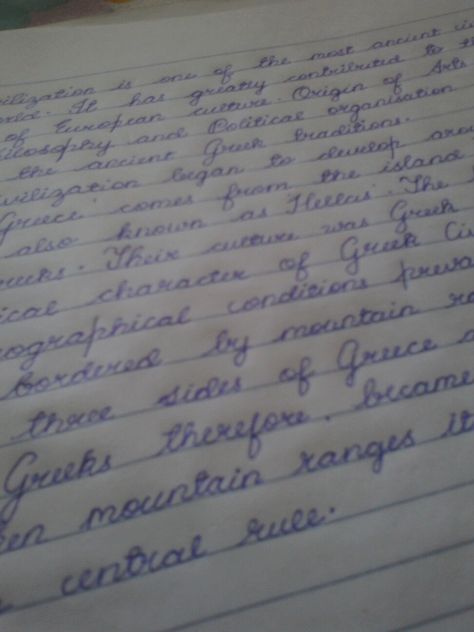 ilization is one of the most ancient ci
orld. It has greatly contributed to th
of European culture. Origin of Arts
ilosophy and Political organisation
the ancient Greek traditions.
ivilization began to develop aro
Greece comes from the island
also known as 'Hellas'. The
eeks. Their culture was Greek
ical character of Greek Civ
ographical conditions preva
bordered by mountain ra
three sides of Greece a
Greeks therefore, became
en mountain ranges it
central rule.